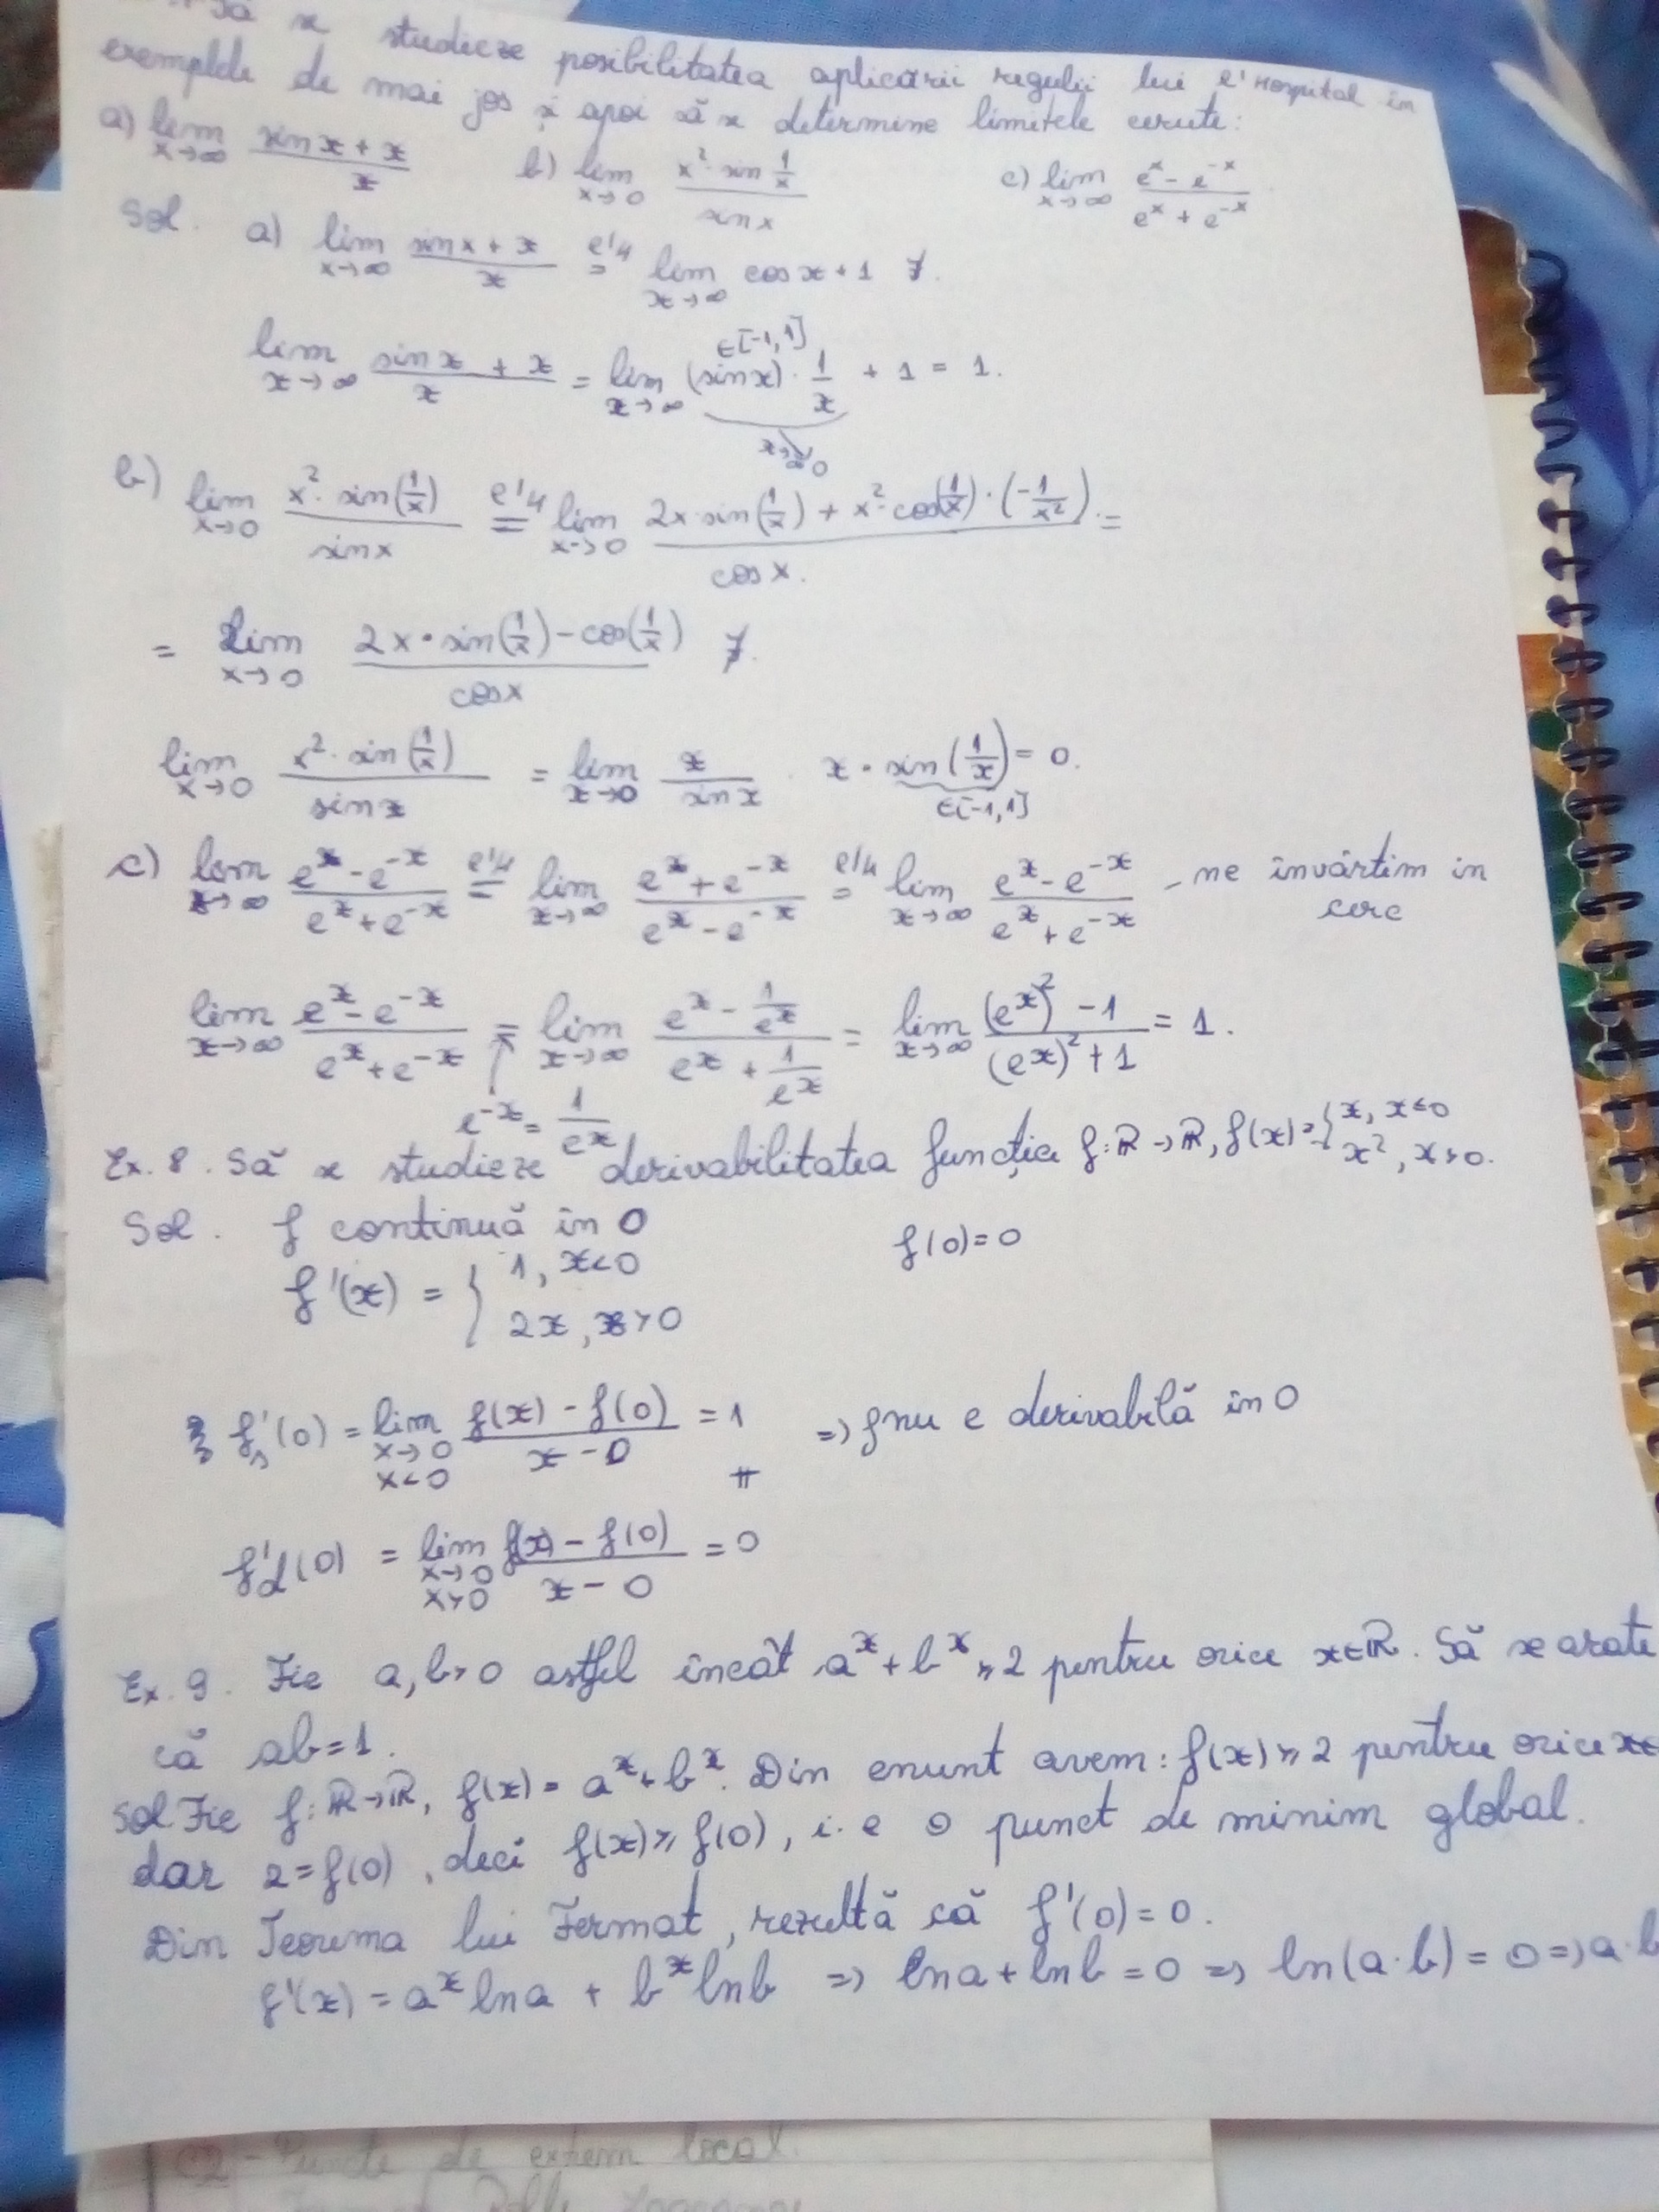 Să se studieze posibilitatea aplicării regulii lui l'Hospital în
exemplele de mai jos și apoi să se determine limitele cerute:
a) lim x→∞ (sin x + x)/x   b) lim x→0 (x² · sin 1/x)/(sin x)   c) lim x→∞ (e^x - e^-x)/(e^x + e^-x)
Sol. a) lim x→∞ (sin x + x)/x =^{l'H} lim x→∞ cos x + 1 ∄.
lim x→∞ (sin x + x)/x = lim x→∞ (sin x) · 1/x + 1 = 1.
∈[-1,1]
x→∞ 0
b) lim x→0 (x² · sin(1/x))/(sin x) =^{l'H} lim x→0 (2x·sin(1/x) + x²·cos(1/x)·(-1/x²))/(cos x) =
= lim x→0 (2x·sin(1/x) - cos(1/x))/(cos x) ∄.
lim x→0 (x² · sin(1/x))/(sin x) = lim x→0 x/(sin x) · x · sin(1/x) = 0.
∈[-1,1]
c) lim x→∞ (e^x - e^-x)/(e^x + e^-x) =^{l'H} lim x→∞ (e^x + e^-x)/(e^x - e^-x) =^{l'H} lim x→∞ (e^x - e^-x)/(e^x + e^-x) - ne învârtim in
cerc
lim x→∞ (e^x - e^-x)/(e^x + e^-x) = lim x→∞ (e^x - 1/e^x)/(e^x + 1/e^x) = lim x→∞ ((e^x)² - 1)/((e^x)² + 1) = 1.
e^-x = 1/e^x
Ex. 8. Să se studieze derivabilitatea funcția f: ℝ→ℝ, f(x) = { x, x≤0
x², x>0.
Sol. f continuă în 0   f(0)=0
f'(x) = { 1, x<0
2x, x>0
f's(0) = lim x→0 x<0 (f(x) - f(0))/(x - 0) = 1   => f nu e derivabilă în 0
≠
f'd(0) = lim x→0 x>0 (f(x) - f(0))/(x - 0) = 0
Ex. 9. Fie a, b>0 astfel încât a^x + b^x ≥ 2 pentru orice x∈ℝ. Să se arate
că ab=1.
Sol Fie f: ℝ→ℝ, f(x) = a^x + b^x. Din enunt avem: f(x) ≥ 2 pentru orice x∈
dar 2=f(0), deci f(x) ≥ f(0), i.e 0 punct de minim global.
Din Teorema lui Fermat, rezultă că f'(0)=0.
f'(x) = a^x ln a + b^x ln b => ln a + ln b = 0 => ln(a·b) = 0 => a·b
- Puncte de extrem local.